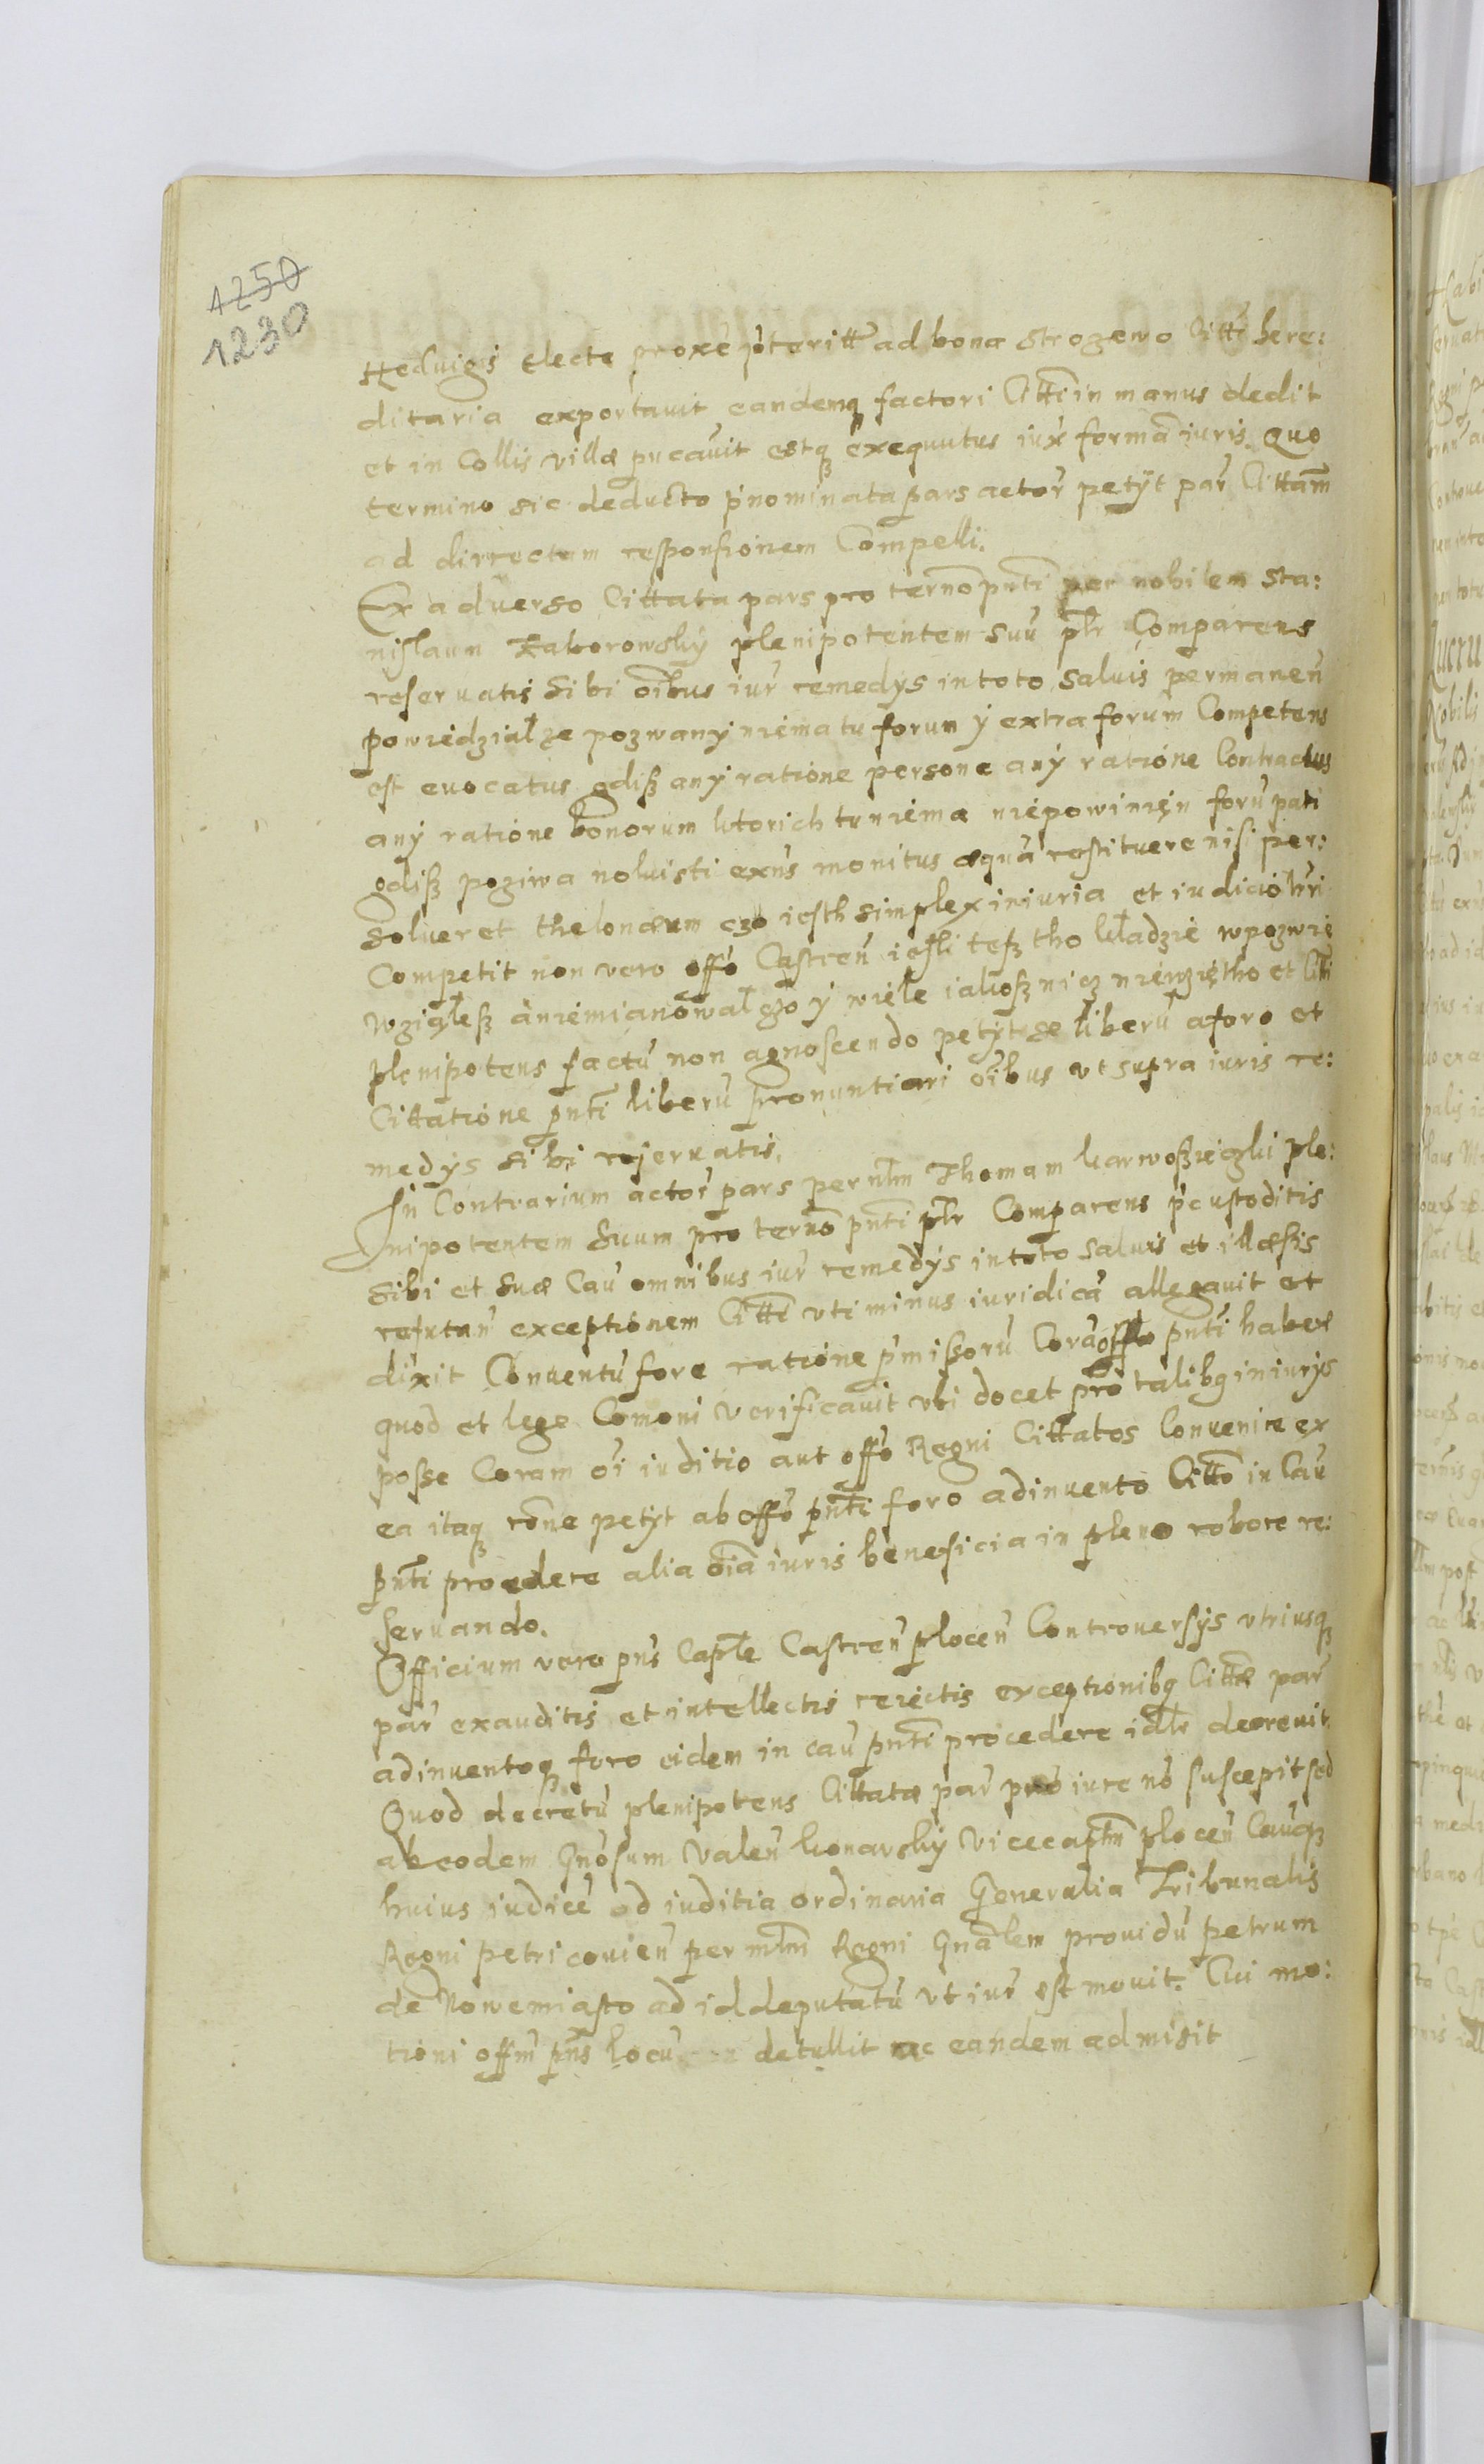 1250
1230
Hedvigis electe proxe pteritt ad bona Strozewo Citti here:
ditaria exportavit eandemq factori Citti in manus dedit
et in Collis villæ pucavit estq exequutus iux forma iuris. Quo
termino sic deducto pnominata pars actor petÿt par Cittam
ad dirrectam responsionem Compelli.
Ex adverso Cittata pars pro termo pnti per nobilem Sta:
nislaum Zaborowskÿ plenipotentem suu plr Comparens
reservatis sibi oibus iur remedÿs in toto salvis permanen
powiedzial ze pozwanÿ niema tu forum ÿ extra forum Competens
est evocatus gdiß anÿ ratione persone anÿ ratione Contractus
anÿ ratione bonorum ktorich tu niema niepowinien foru pati
gdiß poziwa noluisti exns monitus equa restituere nisi per:
solueret thelonæum czo iesth simplex iniuria et iudicio
Competit non vero offo Castren iesli teß tho kladzie wpozwie
wziąleß a niemianowal czo ÿ wiele iakoß nicz niewziętho et Citti
plenipotens factu non agnoscendo petÿt se liberu a foro et
Cittatione pnti liberu pronuntiari oibus ut supra iuris re:
medÿs sibi reservatis.
In Contrarium actor pars per nlm Thomam karwoßieczki ple:
nipotentem suum pro termo pnti plr Comparens pcustoditis
sibi et suæ Cau omnibus iur remedÿs in toto salvis et illæsis
refutan exceptionem Citti uti minus iuridica allegavit et
dixit Conventu fore ratione pmissoru Cora offo pnti haberi
quod et lege Comoni verificavit ubi docet pro talibq iniurÿs
posse Coram oi iuditio aut offo Regni Cittatos Convenire ex
ea itaq rone petÿt ab offo pnti foro adinvento Citto in Cau
pnti procedere alia oia iuris beneficia in pleno robore re:
servando.
Officium vero pns Caple Castren plocen Controversÿs utriusq
par exauditis et intellectis reiectis exceptionibq Cittæ par
adinventoq foro eidem in cau pnti procedere idlr decrevit.
Quod decretu plenipotens Cittatæ par pro iure no suscepit sed
ab eodem Gnosum Valen konarskÿ Vicecaptm plocen Cauq
huius iudice ad iuditia ordinaria Generalia Tribunalis
Regni petricovien per mlm Regni Gnalem providu petrum
de Nowemiasto ad id deputatu ut iur est movit. Cui mo:
tioni offm pns locu detullit ac eandem admisit